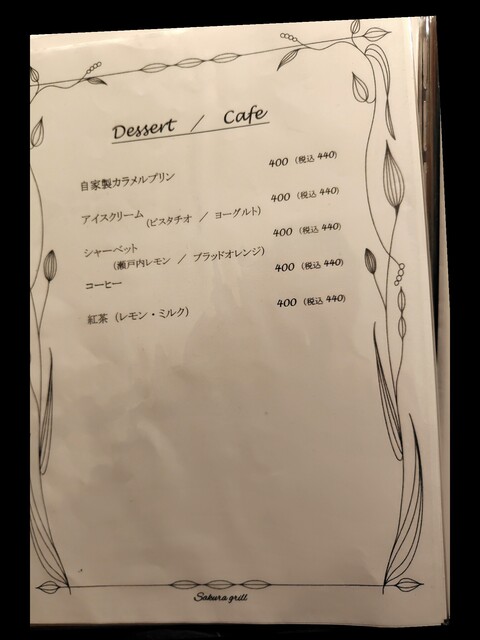 Dessert / Cafe
自家製カラメルプリン 400 (税込 440)
アイスクリーム (ピスタチオ / ヨーグルト) 400 (税込 440)
シャーベット 400 (税込 440)
(瀬戸内レモン / ブラッドオレンジ)
コーヒー 400 (税込 440)
紅茶 (レモン・ミルク) 400 (税込 440)
Sakura grill